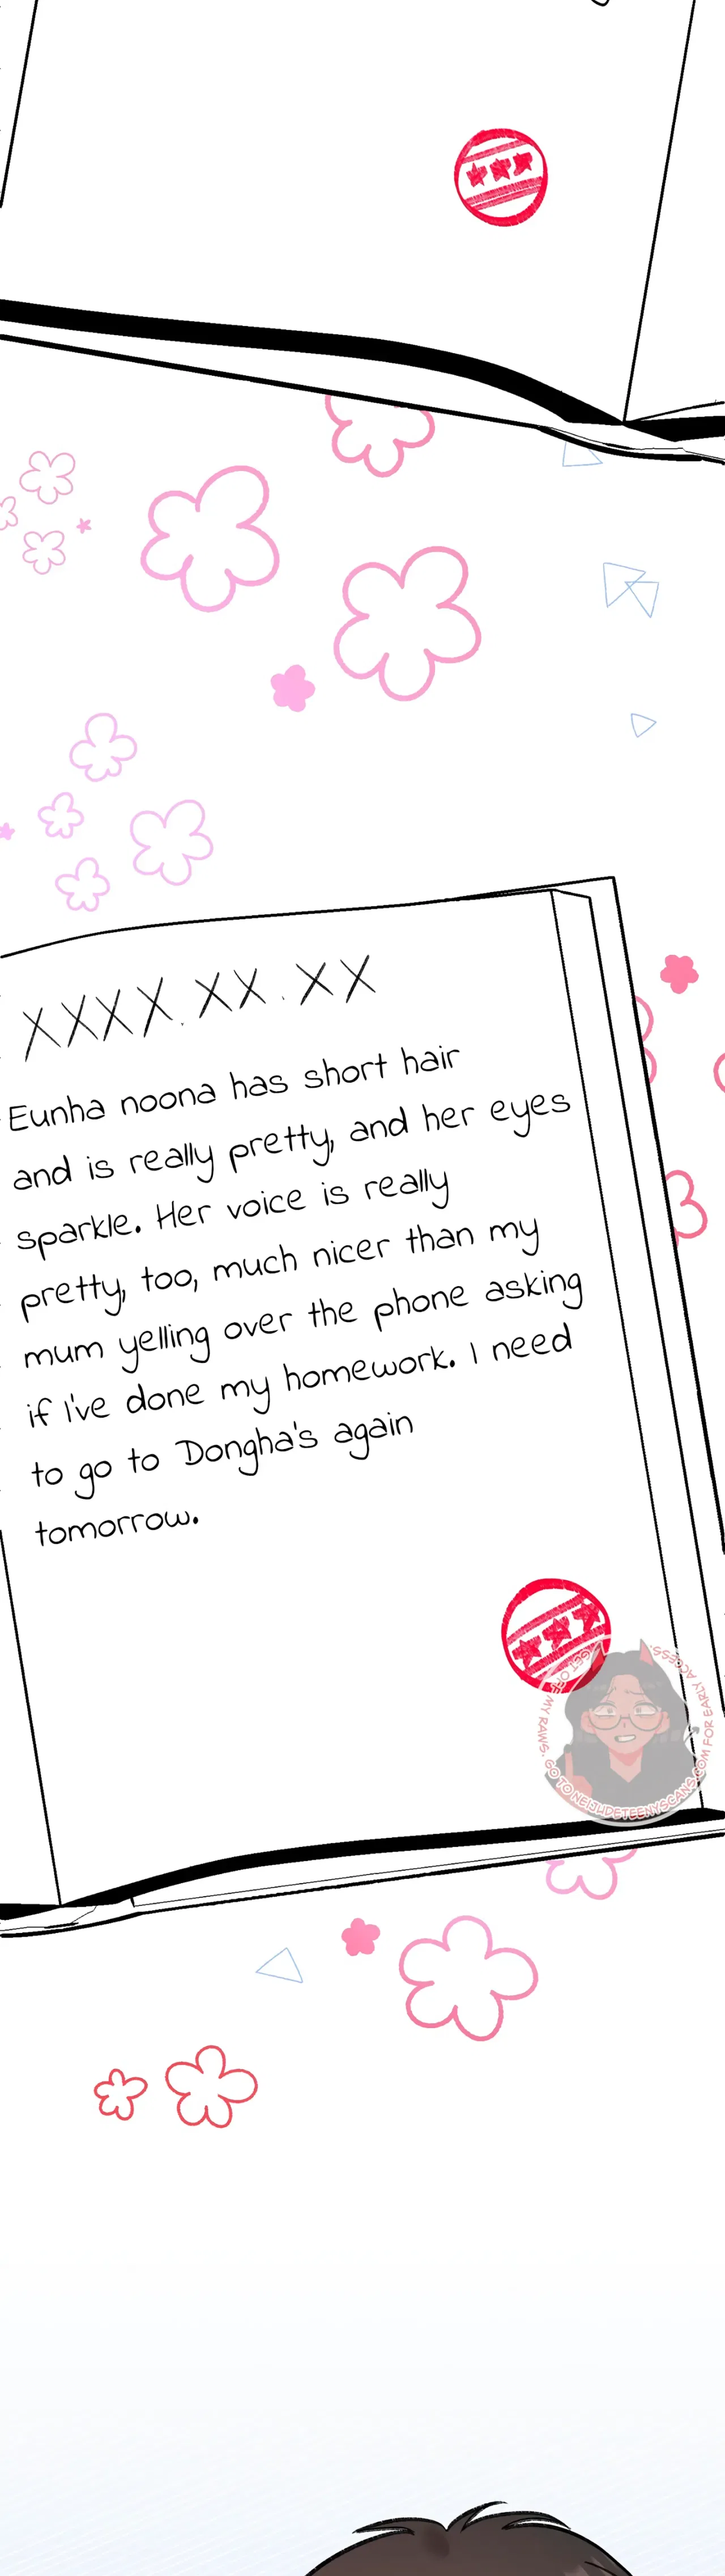 XXXX.XX.XX
Eunha noona has short hair
and is really pretty, and her eyes
sparkle. Her voice is really
pretty, too, much nicer than my
mum yelling over the phone asking
if I've done my homework. I need
to go to Dongha's again
tomorrow.
GET OFF MY RAWS. GO TO NEIJIIDETEENYSCANS.COM FOR EARLY ACCESS.